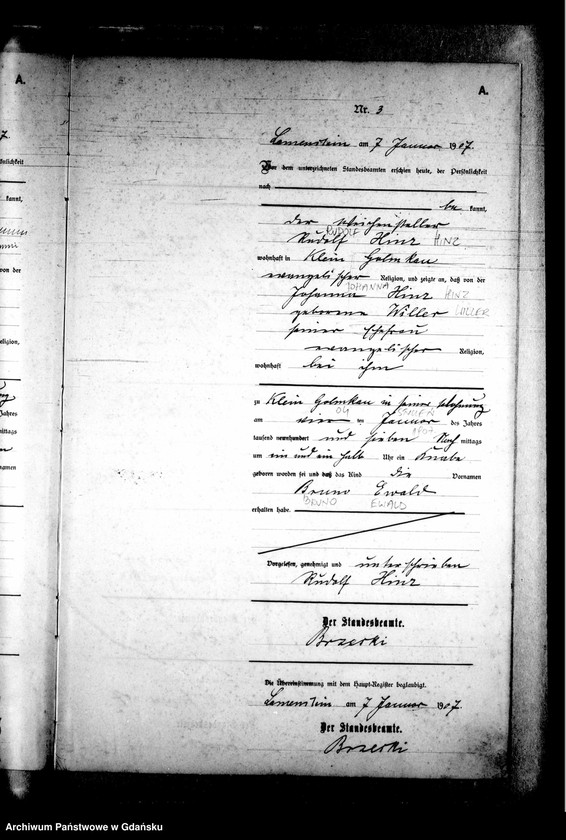 A.
A.
Nr. 3
Lamenstein am 7 Januar 1907.
Vor dem unterzeichneten Standesbeamten erschien heute, der Persönlichkeit
nach
be kannt,
der Weichensteller
RUDOLF
Rudolf Hinz HINZ
wohnhaft in Klein Golmkau
evangelischer Religion, und zeigte an, daß von der
JOHANNA
Johanna Hinz HINZ
geborene Willer WILLER
seiner Ehefrau
evangelischer Religion,
wohnhaft bei ihm
zu Klein Golmkau in seiner Wohnung
04
am vier ten Januar des Jahres
1907
tausend neunhundert und sieben Nach mittags
um ein und ein halb Uhr ein Knabe
geboren worden sei und daß das Kind die Vornamen
Bruno Ewald
BRUNO EWALD
erhalten habe.
Vorgelesen, genehmigt und unterschrieben
Rudolf Hinz
Der Standesbeamte.
Brzeski
Die Übereinstimmung mit dem Haupt-Register beglaubigt.
Lamenstein am 7 Januar 1907.
Der Standesbeamte.
Brzeski
Archiwum Państwowe w Gdańsku